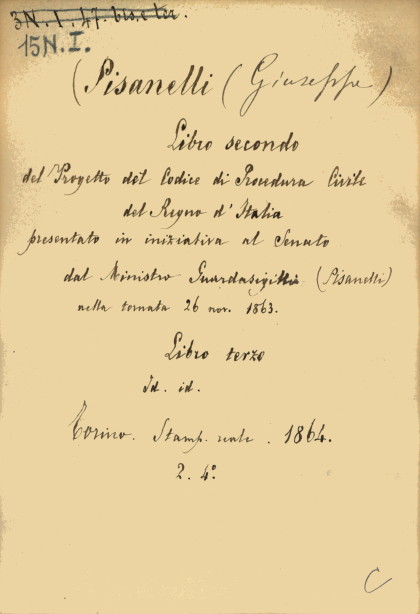 3N. I. 47. bis, e ter.
15 N. I.
(Pisanelli (Giuseppe)
Libro secondo
del Progetto del Codice di Procedura Civile
del Regno d'Italia
presentato in iniziativa al Senato
dal Ministro Guardasigilli (Pisanelli)
nella tornata 26 nov. 1863.
Libro terzo
Id. id.
Torino. Stamp. reale. 1864.
2. 4°.
C